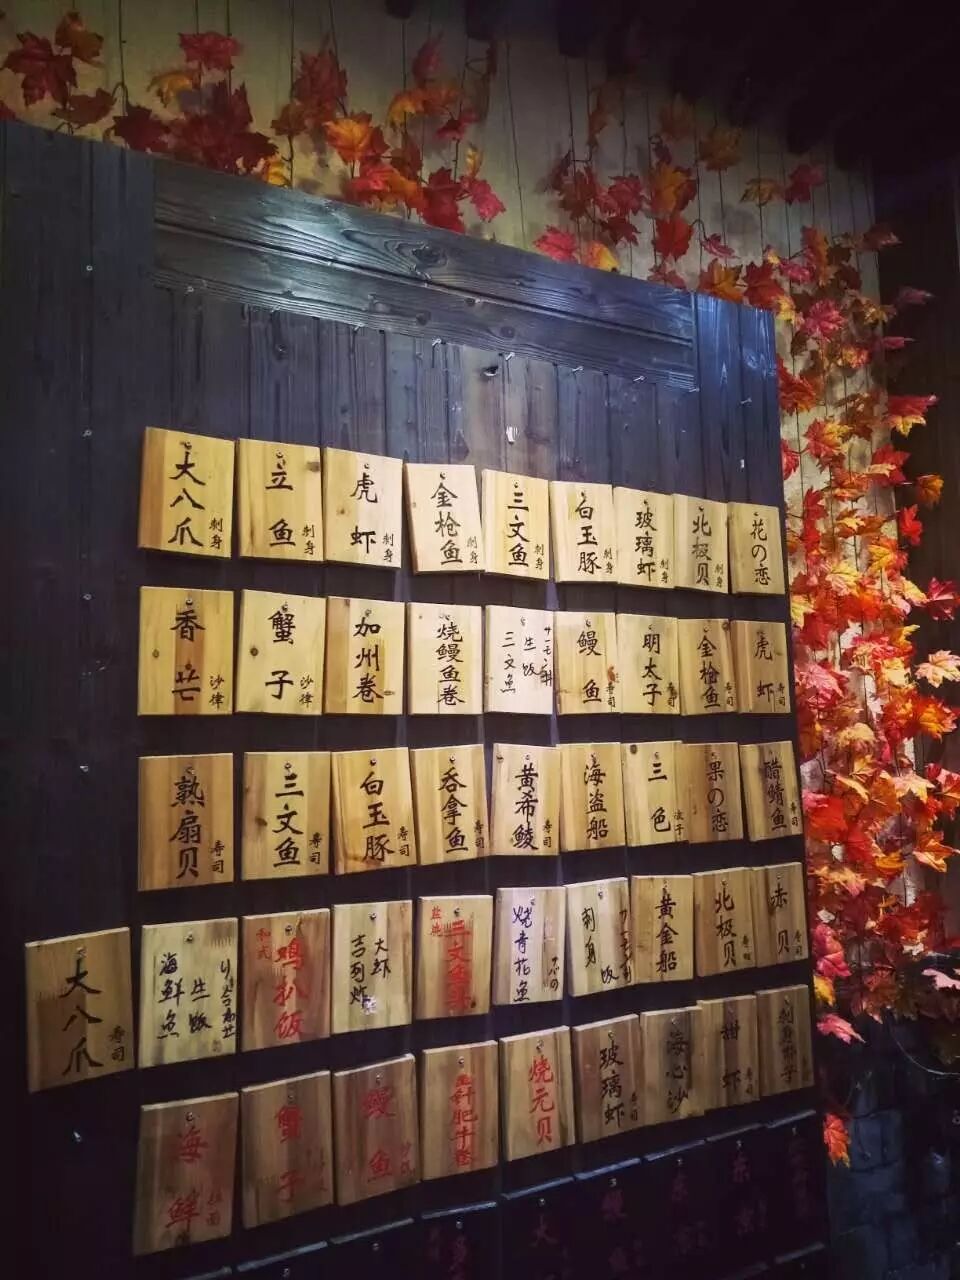 大八爪 刺身
立鱼 刺身
虎虾 刺身
金枪鱼 刺身
三文鱼 刺身
白玉豚 刺身
玻璃虾 刺身
北极贝 刺身
花の恋
香芒 沙律
蟹子 沙律
加州卷
烧鳗鱼卷
三文鱼 生饭
鳗鱼 寿司
明太子 寿司
金枪鱼 寿司
虎虾 寿司
熟扇贝 寿司
三文鱼 寿司
白玉豚 寿司
吞拿鱼 寿司
黄希鲮 寿司
海盗船
三色
果の恋
醋鲭鱼 寿司
大八爪 寿司
海鲜鱼 生饭
和式 鸡扒饭
大虾 吉列炸
烧青花鱼
刺身 饭
黄金船
北极贝 寿司
赤贝 寿司
海鲜
蟹子
鳗鱼
金针肥牛卷
烧元贝
玻璃虾 寿司
海心沙
甜虾 寿司